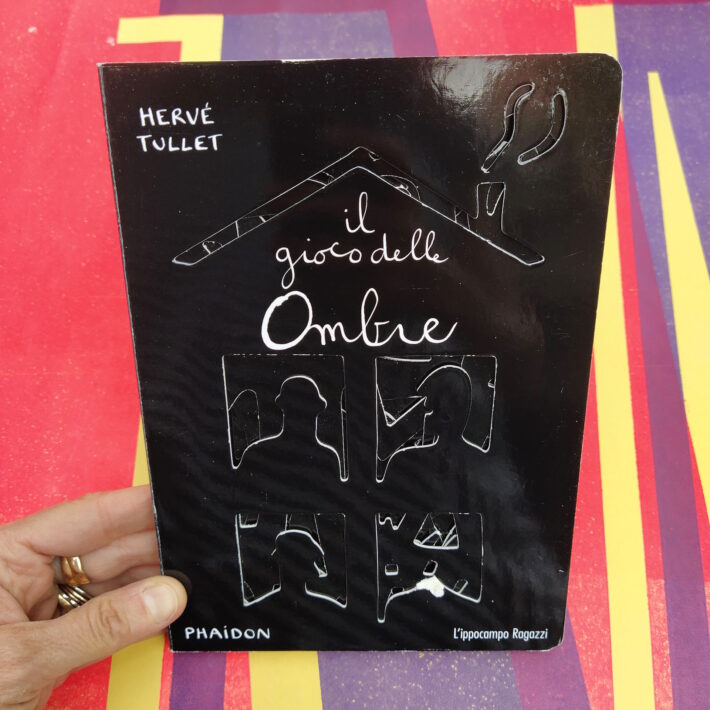 HERVÉ
TULLET
il
gioco delle
Ombre
PHAIDON
L'ippocampo Ragazzi